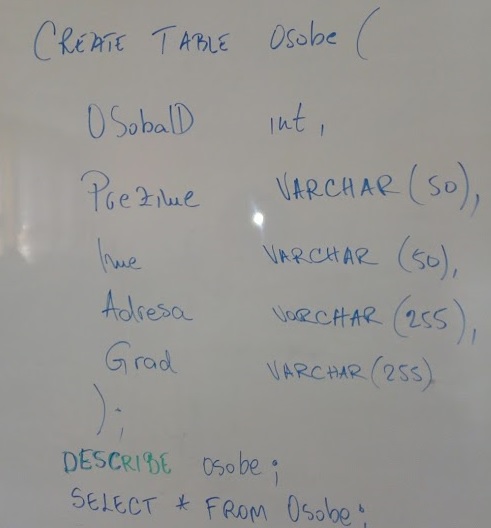 CREATE TABLE Osobe (
OSobaID int,
Prezime VARCHAR (50),
Ime VARCHAR (50),
Adresa VARCHAR (255),
Grad VARCHAR (255)
);
DESCRIBE osobe;
SELECT * FROM Osobe;